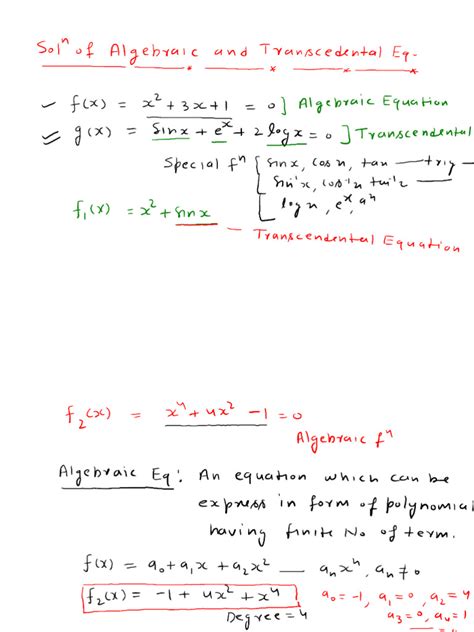 Solⁿ of Algebraic and Transcedental Eq.
f(x) = x² + 3x + 1 = 0 ] Algebraic Equation
g(x) = sinx + eˣ + 2 logx = 0 ] Transcendental
Special fⁿ [ sinx, cosx, tan — trig —
sin⁻¹x, cos⁻¹x tan⁻¹x —
logx, eˣ, aˣ
f₁(x) = x² + sinx
— Transcendental Equation
f₂(x) = x⁴ + 4x² - 1 = 0
Algebraic fⁿ
Algebraic Eq : An equation which can be
express in form of polynomial
having finite No of term.
f(x) = a₀ + a₁x + a₂x² — aₙxⁿ, aₙ ≠ 0
f₂(x) = -1 + 4x² + x⁴ a₀ = -1, a₁ = 0, a₂ = 4
Degree = 4 a₃ = 0, a₄ = 1